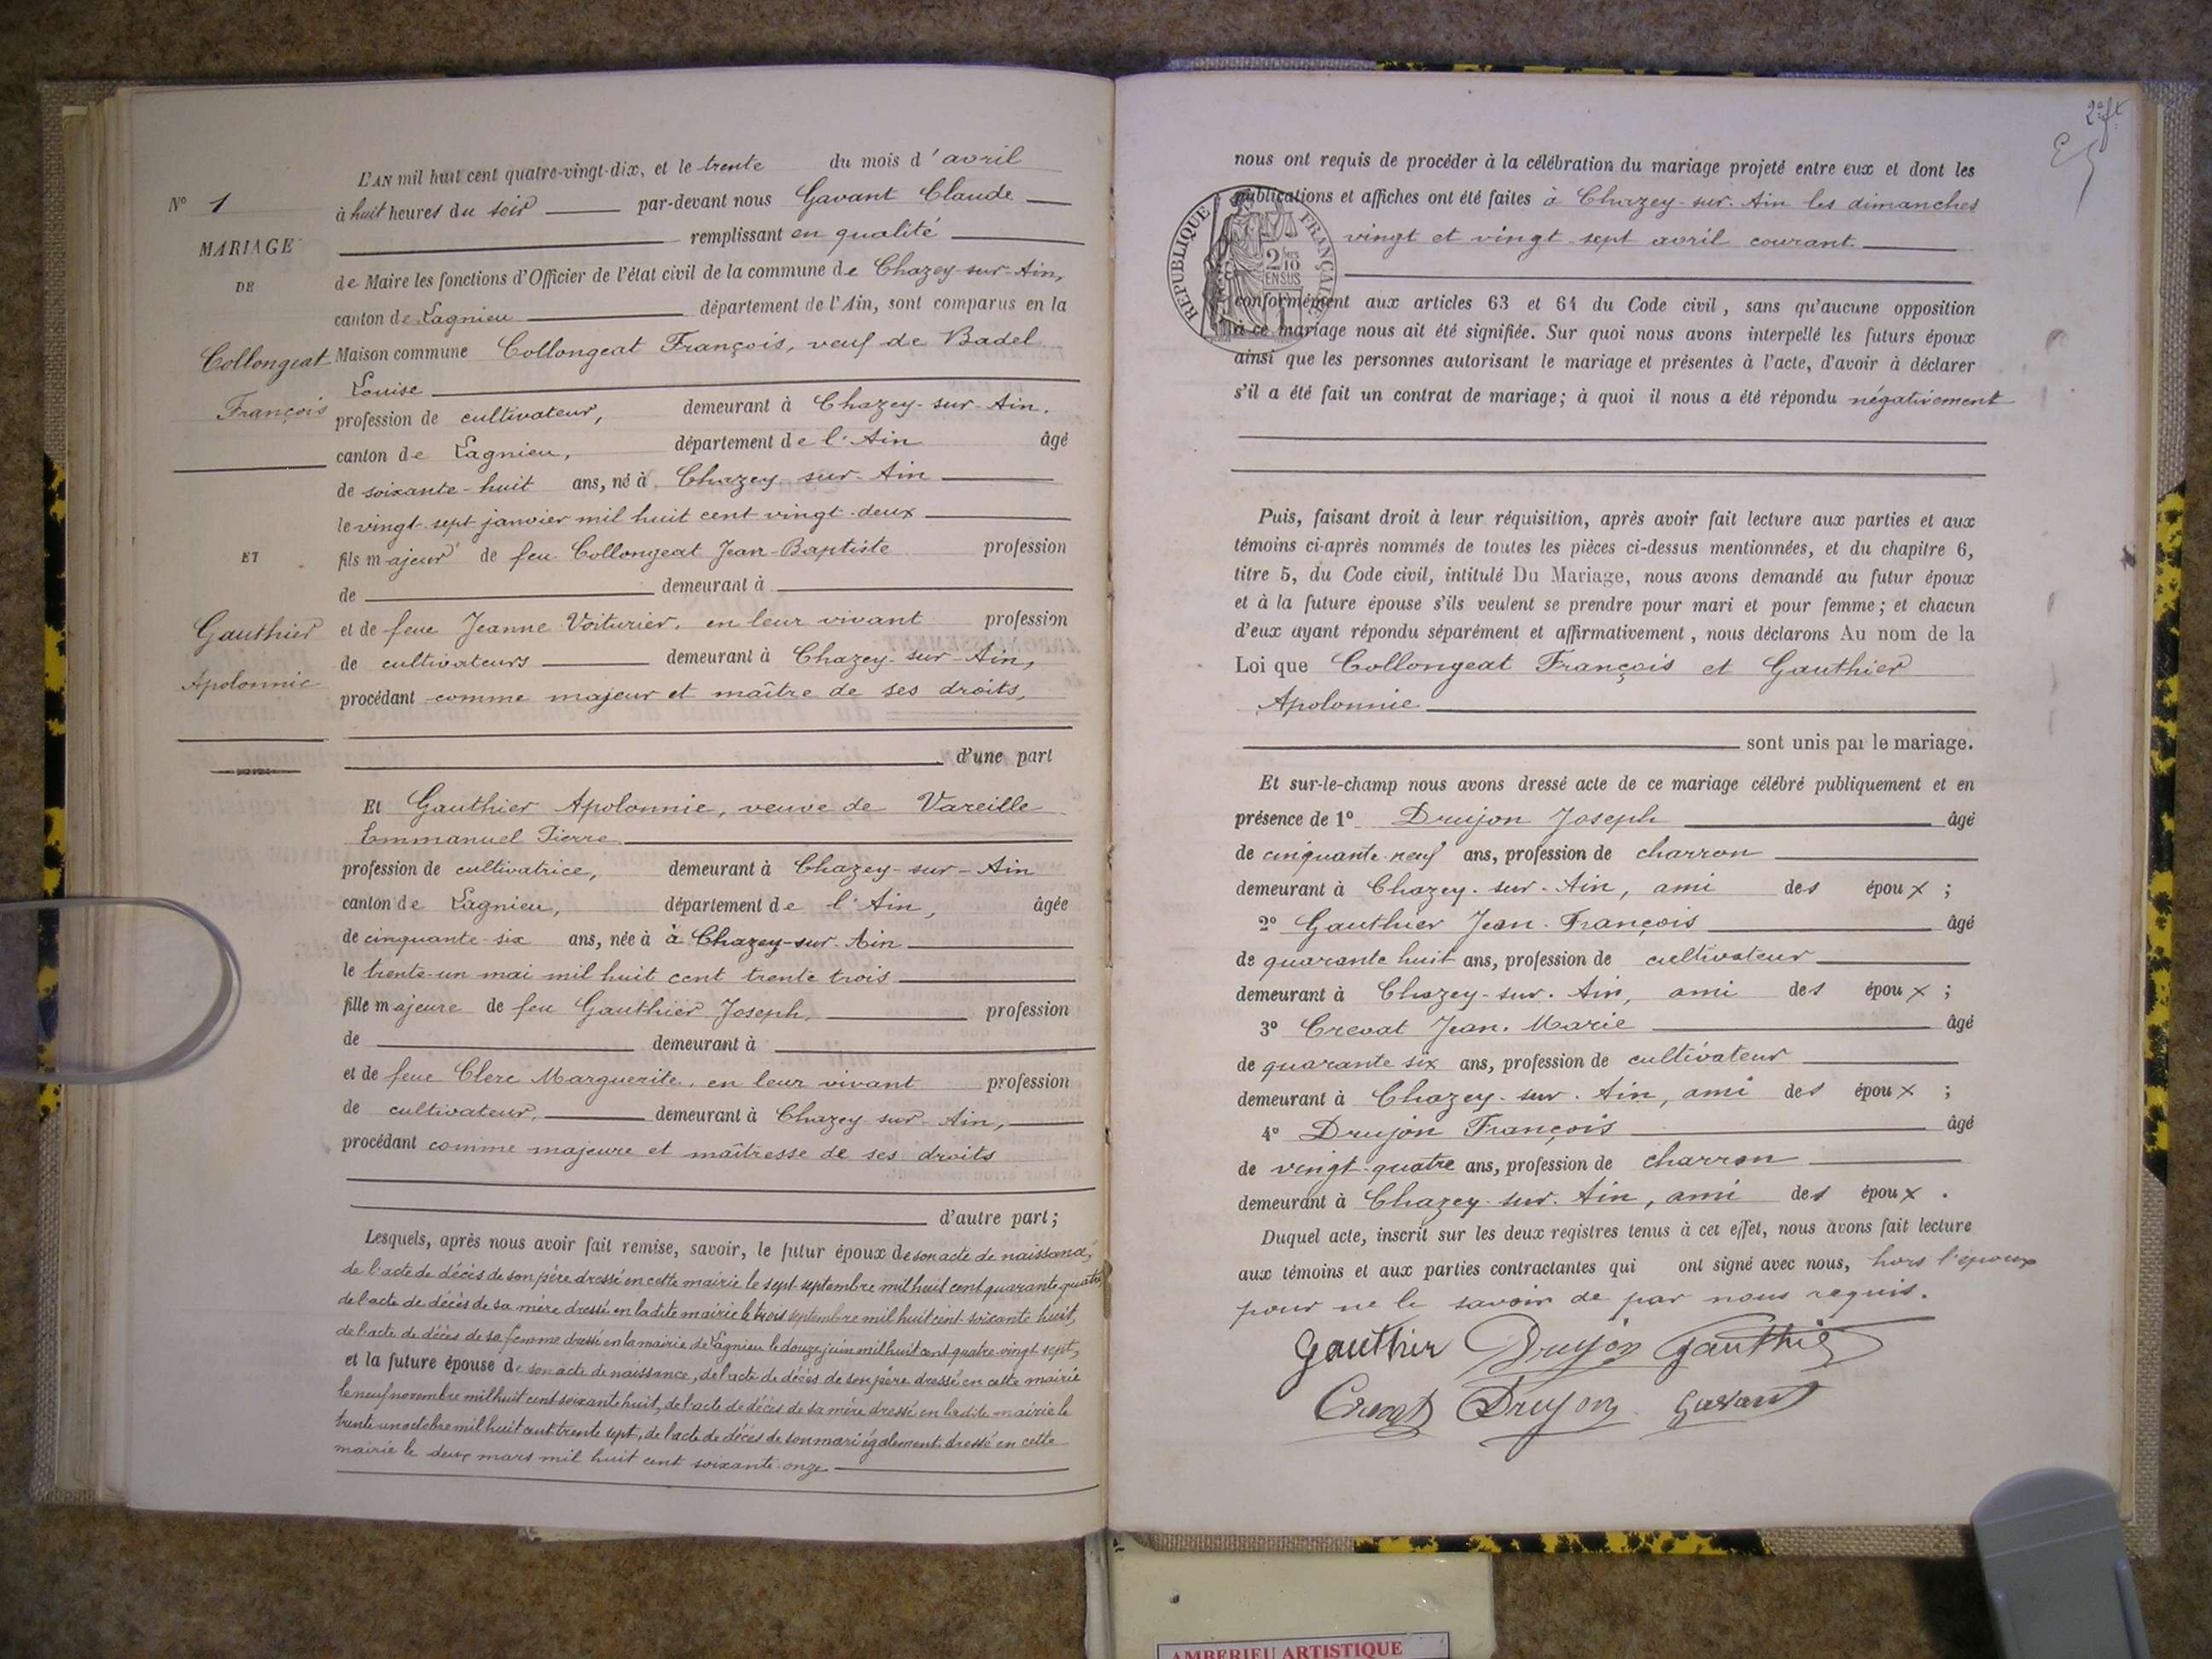 N° 1
MARIAGE
DE
Collongeat
François
ET
Gauthier
Apolonnie
L'AN mil huit cent quatre-vingt-dix, et le trente du mois d'avril
à huit heures du soir par-devant nous Gavant Claude
remplissant en qualité
de Maire les fonctions d'Officier de l'état civil de la commune de Chazey-sur-Ain,
canton de Lagnieu département de l'Ain, sont comparus en la
Maison commune Collongeat François, veuf de Badel
Louise
profession de cultivateur, demeurant à Chazey-sur-Ain.
canton de Lagnieu, département de l'Ain âgé
de soixante-huit ans, né à Chazey-sur-Ain
le vingt-sept janvier mil huit cent vingt-deux
fils majeur de feu Collongeat Jean-Baptiste profession
de demeurant à
et de feue Jeanne Voiturier, en leur vivant profession
de cultivateurs demeurant à Chazey-sur-Ain,
procédant comme majeur et maître de ses droits,
d'une part
Et Gauthier Apolonnie, veuve de Vareille
Emmanuel Pierre
profession de cultivatrice, demeurant à Chazey-sur-Ain
canton de Lagnieu, département de l'Ain, âgée
de cinquante-six ans, née à à Chazey-sur-Ain
le trente-un mai mil huit cent trente trois
fille majeure de feu Gauthier Joseph, profession
de demeurant à
et de feue Clerc Marguerite, en leur vivant profession
de cultivateur, demeurant à Chazey sur Ain,
procédant comme majeure et maîtresse de ses droits
d'autre part;
Lesquels, après nous avoir fait remise, savoir, le futur époux de son acte de naissance,
de l'acte de décès de son père dressé en cette mairie le sept septembre mil huit cent quarante quatre
de l'acte de décès de sa mère dressé en ladite mairie le trois septembre mil huit cent soixante huit,
de l'acte de décès de sa femme dressé en la mairie de Lagnieu le douze juin mil huit cent quatre-vingt sept,
et la future épouse de son acte de naissance, de l'acte de décès de son père dressé en cette mairie
le neuf novembre mil huit cent soixante huit, de l'acte de décès de sa mère dressé en ladite mairie le
trente un octobre mil huit cent trente sept, de l'acte de décès de son mari également dressé en cette
mairie le deux mars mil huit cent soixante-onze
nous ont requis de procéder à la célébration du mariage projeté entre eux et dont les
publications et affiches ont été faites à Chazey-sur-Ain les dimanches
vingt et vingt-sept avril courant
REPUBLIQUE FRANÇAISE
2/10
EN SUS
conformément aux articles 63 et 64 du Code civil, sans qu'aucune opposition
à ce mariage nous ait été signifiée. Sur quoi nous avons interpellé les futurs époux
ainsi que les personnes autorisant le mariage et présentes à l'acte, d'avoir à déclarer
s'il a été fait un contrat de mariage; à quoi il nous a été répondu négativement
Puis, faisant droit à leur réquisition, après avoir fait lecture aux parties et aux
témoins ci-après nommés de toutes les pièces ci-dessus mentionnées, et du chapitre 6,
titre 5, du Code civil, intitulé Du Mariage, nous avons demandé au futur époux
et à la future épouse s'ils veulent se prendre pour mari et pour femme; et chacun
d'eux ayant répondu séparément et affirmativement, nous déclarons Au nom de la
Loi que Collongeat François et Gauthier
Apolonnie
sont unis par le mariage.
Et sur-le-champ nous avons dressé acte de ce mariage célébré publiquement et en
présence de 1° Drujon Joseph âgé
de cinquante-neuf ans, profession de charron
demeurant à Chazey-sur-Ain, ami des époux;
2° Gauthier Jean-François âgé
de quarante huit ans, profession de cultivateur
demeurant à Chazey-sur-Ain, ami des époux;
3° Crevat Jean-Marie âgé
de quarante six ans, profession de cultivateur
demeurant à Chazey-sur-Ain, ami des époux;
4° Drujon François âgé
de vingt-quatre ans, profession de charron
demeurant à Chazey-sur-Ain, ami des époux.
Duquel acte, inscrit sur les deux registres tenus à cet effet, nous avons fait lecture
aux témoins et aux parties contractantes qui ont signé avec nous, hors l'époux
pour ne le savoir de par nous requis.
Gauthier Drujon Gauthier
Crevat Drujon Gavant
AMBERIEU ARTISTIQUE